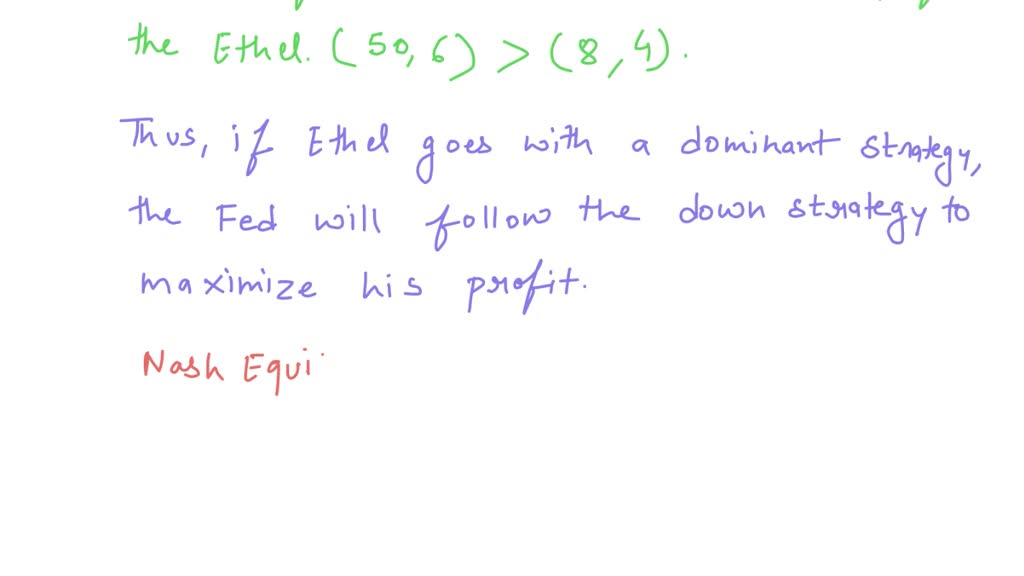 the Ethel. (50, 6) > (8, 4).
Thus, if Ethel goes with a dominant strategy,
the Fed will follow the down strategy to
maximize his profit.
Nash Equi